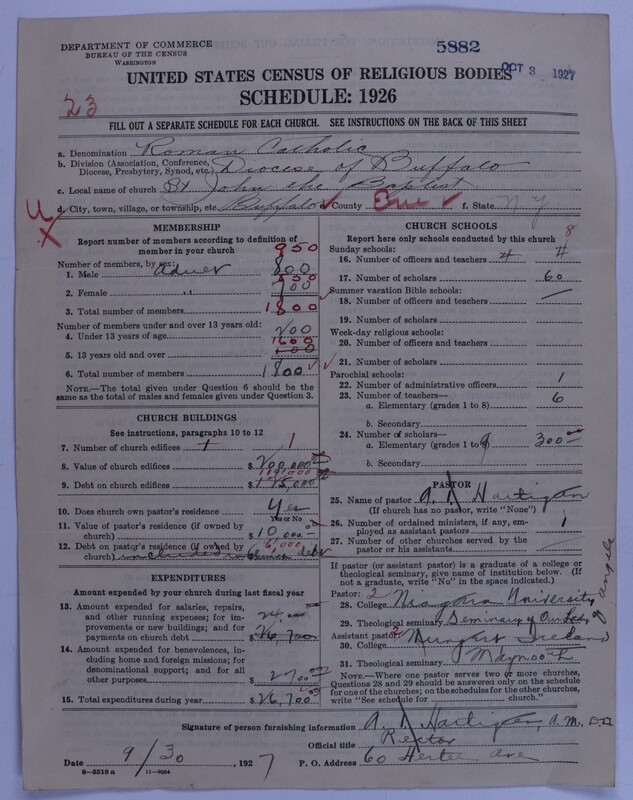 DEPARTMENT OF COMMERCE
BUREAU OF THE CENSUS
WASHINGTON
5882
OCT 3 1927
UNITED STATES CENSUS OF RELIGIOUS BODIES
SCHEDULE: 1926
23
FILL OUT A SEPARATE SCHEDULE FOR EACH CHURCH. SEE INSTRUCTIONS ON THE BACK OF THIS SHEET
a. Denomination Roman Catholic
b. Division (Association, Conference, Diocese, Presbytery, Synod, etc.) Diocese of Buffalo
c. Local name of church St John the Baptist
d. City, town, village, or township, etc. Buffalo County Erie f. State N Y
MEMBERSHIP
Report number of members according to definition of member in your church
Number of members, by sex:
950
1. Male 800
2. Female
3. Total number of members 1800
Number of members under and over 13 years old:
4. Under 13 years of age 200
1600
5. 13 years old and over
6. Total number of members 1800
NOTE.—The total given under Question 6 should be the same as the total of males and females given under Question 3.
CHURCH BUILDINGS
See instructions, paragraphs 10 to 12
7. Number of church edifices 1 1
8. Value of church edifices $200,000
9. Debt on church edifices $
10. Does church own pastor's residence Yes
Yes or No
11. Value of pastor's residence (if owned by church) $10,000
12. Debt on pastor's residence (if owned by church) 6,000 debt
EXPENDITURES
Amount expended by your church during last fiscal year
13. Amount expended for salaries, repairs, and other running expenses; for improvements or new buildings; and for payments on church debt $26,700
14. Amount expended for benevolences, including home and foreign missions; for denominational support; and for all other purposes $2700
15. Total expenditures during year $26,700
CHURCH SCHOOLS
Report here only schools conducted by this church
Sunday schools: 8
16. Number of officers and teachers 4
17. Number of scholars 60
Summer vacation Bible schools:
18. Number of officers and teachers —
19. Number of scholars
Week-day religious schools:
20. Number of officers and teachers
21. Number of scholars
Parochial schools:
22. Number of administrative officers 1
23. Number of teachers—
a. Elementary (grades 1 to 8) 6
b. Secondary
24. Number of scholars—
a. Elementary (grades 1 to 8) 300
b. Secondary
PASTOR
25. Name of pastor A. Hartigan
(If church has no pastor, write "None")
26. Number of ordained ministers, if any, employed as assistant pastors 1
27. Number of other churches served by the pastor or his assistants
If pastor (or assistant pastor) is a graduate of a college or theological seminary, give name of institution below. (If not a graduate, write "No" in the space indicated.)
Pastor: 2
28. College Niagara University
29. Theological seminary Seminary of Our Lady of Angels
Assistant pastor:
30. College Mungret Ireland
31. Theological seminary Maynooth
NOTE.—Where one pastor serves two or more churches, Questions 28 and 29 should be answered only on the schedule for one of the churches; on the schedules for the other churches, write "See schedule for church."
Signature of person furnishing information A. Hartigan, A. M. D D
Official title Rector
Date 9/30, 1927 P. O. Address 60 Hertel Ave
8—5518 a 11—9034